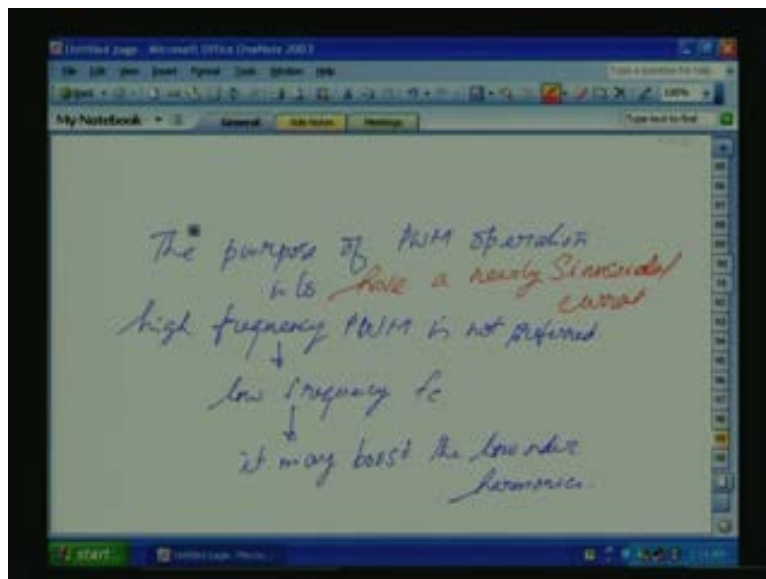 Untitled page - Microsoft Office OneNote 2003
File Edit View Insert Format Tools Window Help
100%
My Notebook General Side Notes Meetings Type text to find
The purpose of PWM operation
is to have a nearly Sinusoidal
current
high frequency PWM is not preferred
low frequency fc
it may boost the low order
harmonics.
start Untitled page - Micro...